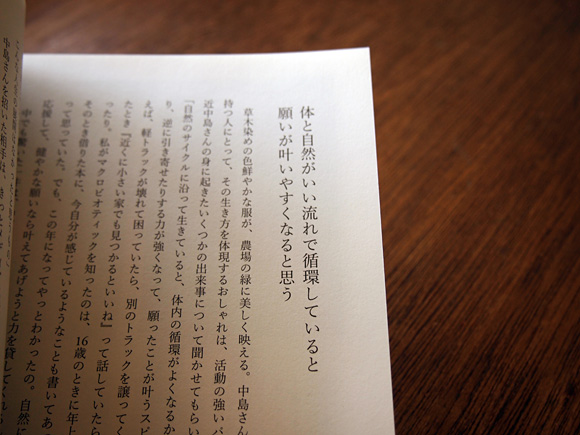 体と自然がいい流れで循環していると
願いが叶いやすくなると思う
草木染めの色鮮やかな服が、農場の緑に美しく映える。中島さん
持つ人にとって、その生き方を体現するおしゃれは、活動の強いバ
近中島さんの身に起きたいくつかの出来事について聞かせてもらい
「自然のサイクルに沿って生きていると、体内の循環がよくなるか
り、逆に引き寄せたりする力が強くなって、願ったことが叶うスピ
えば、軽トラックが壊れて困っていたら、別のトラックを譲ってく
たとき『近くに小さい家でも見つかるといいね』って話していたら
ったり。私がマクロビオティックを知ったのは、16歳のときに年上
そのとき借りた本に、今自分が感じているようなことも書いてあ
って思っていた。でも、この年になってやっとわかったの。自然に
応援して、健やかな願いなら叶えてあげようと力を貸してくれる
中島さんを招いた相手は、